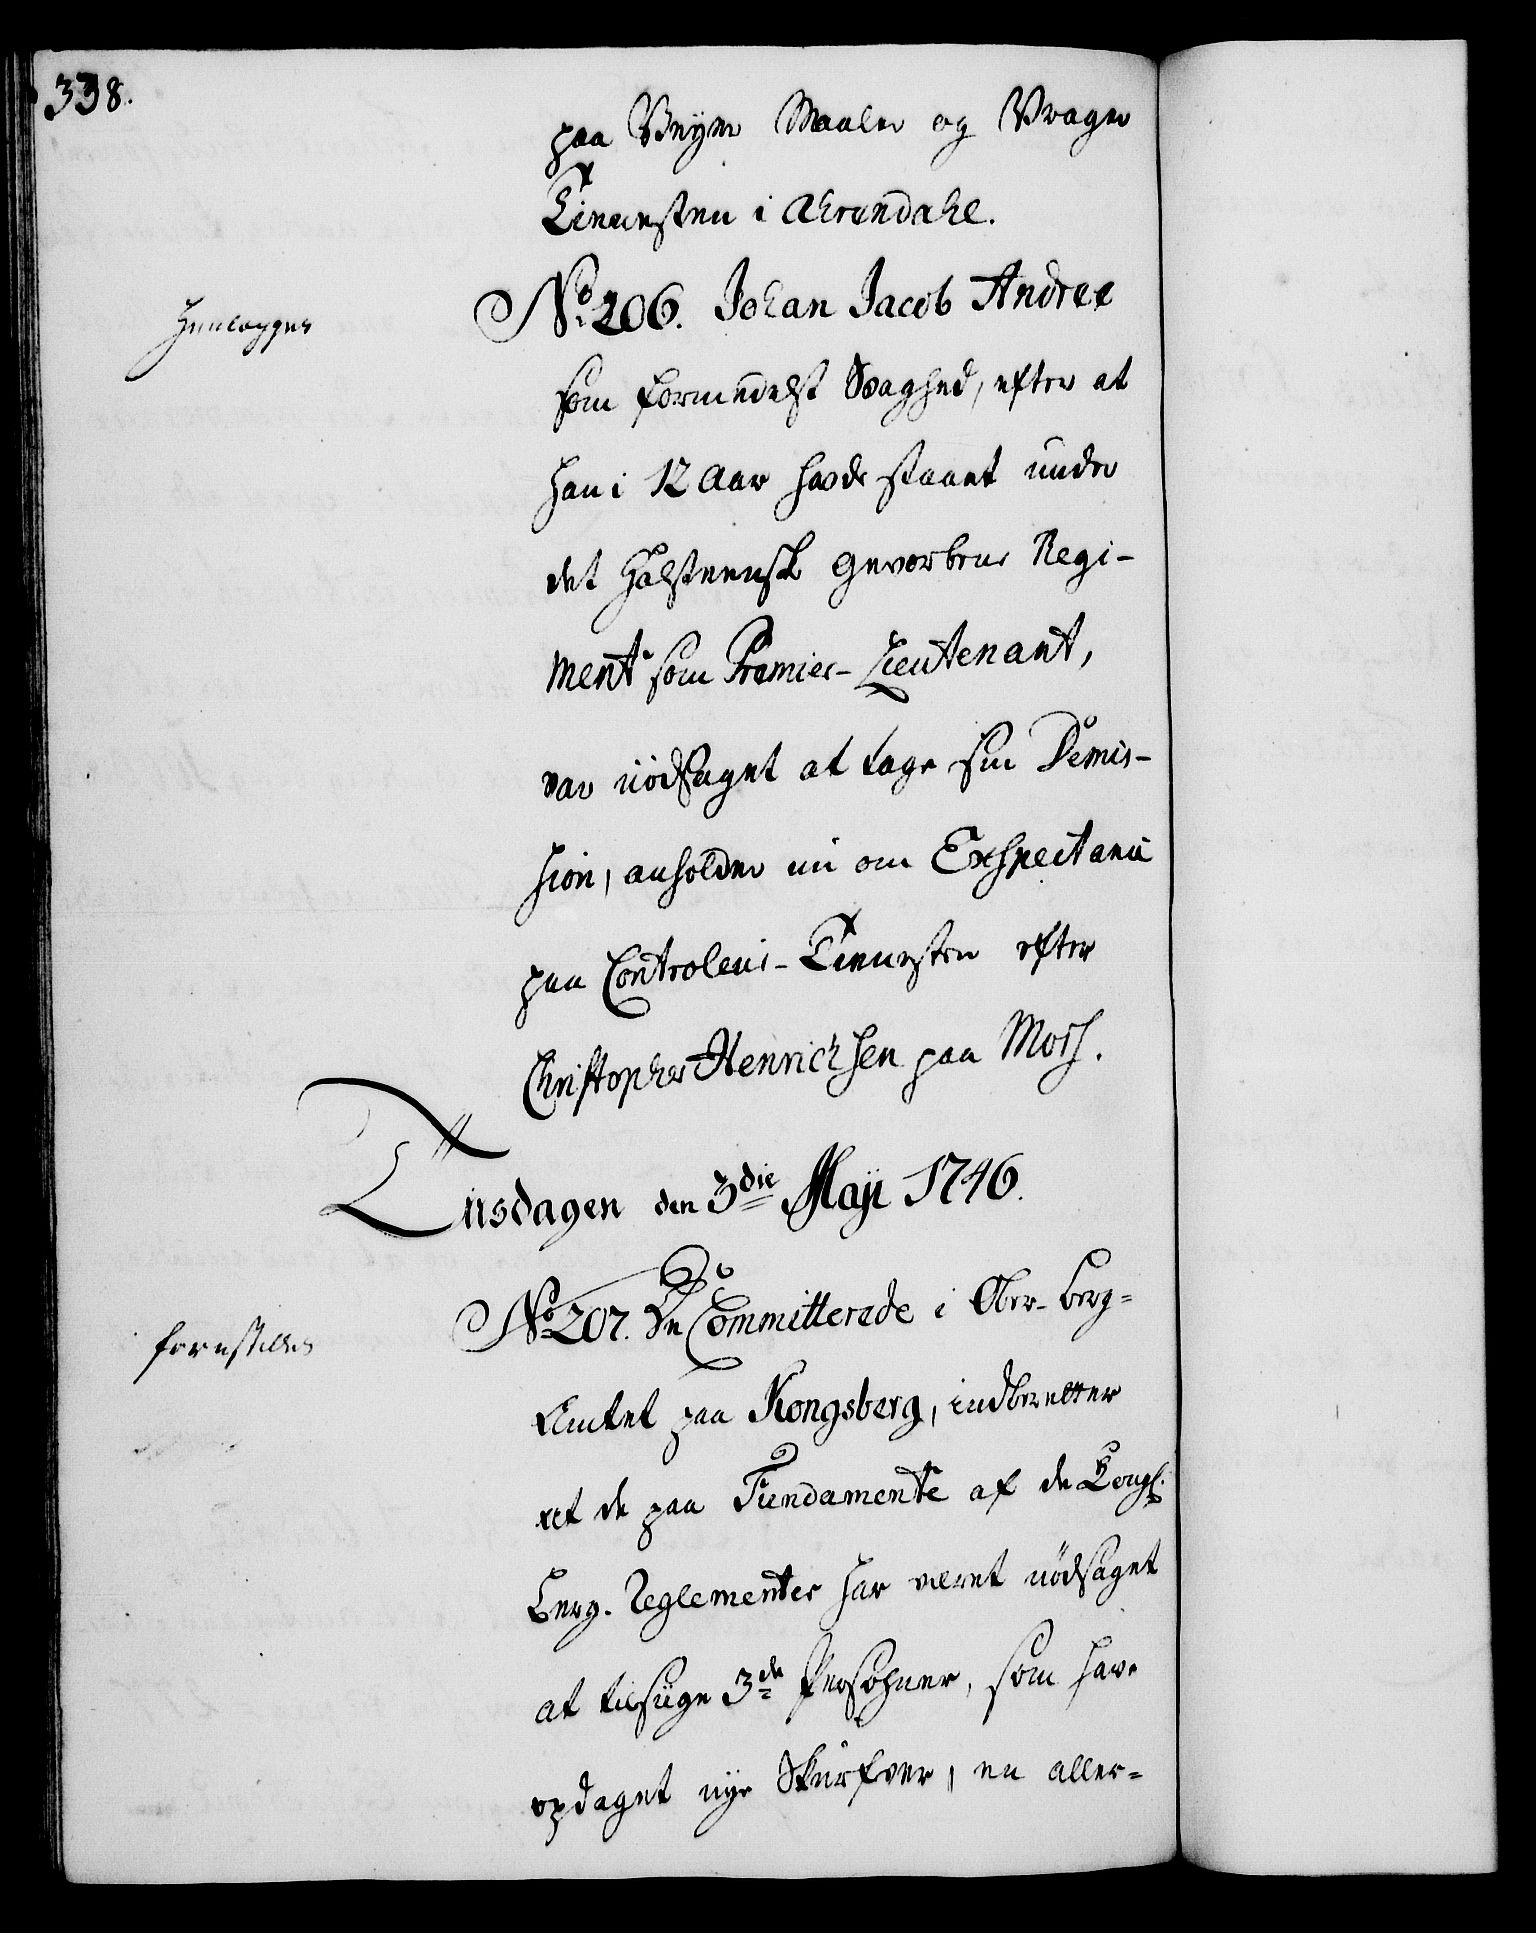 338.
paa Veÿer Maaler og Vrager
Tienesten i Ahrendahl.
Henlegges
No. 206. Johan Jacob Andree
som formedelst Svaghed, efter at
han i 12 Aar havde staaet under
det Holsteensk Gevorbene Regi-
ment som Premier-Lieutenant,
var nödsaget at tage sin Demis-
sion, anholder nu om Exspectance
paa Controleur-Tienesten efter
Christopher Henrichsen paa Mors.
Tiisdagen den 3die Maji 1746.
forestilles
No. 207. De Committerede i Ober-Berg-
Amtet paa Kongsberg, indberetter
at de paa Fundamente af de Kongl.
Berg-Reglementer har været nödsaget
at tilsiige 3de Persohner, som have
opdaget nye Skurfver, en aller-